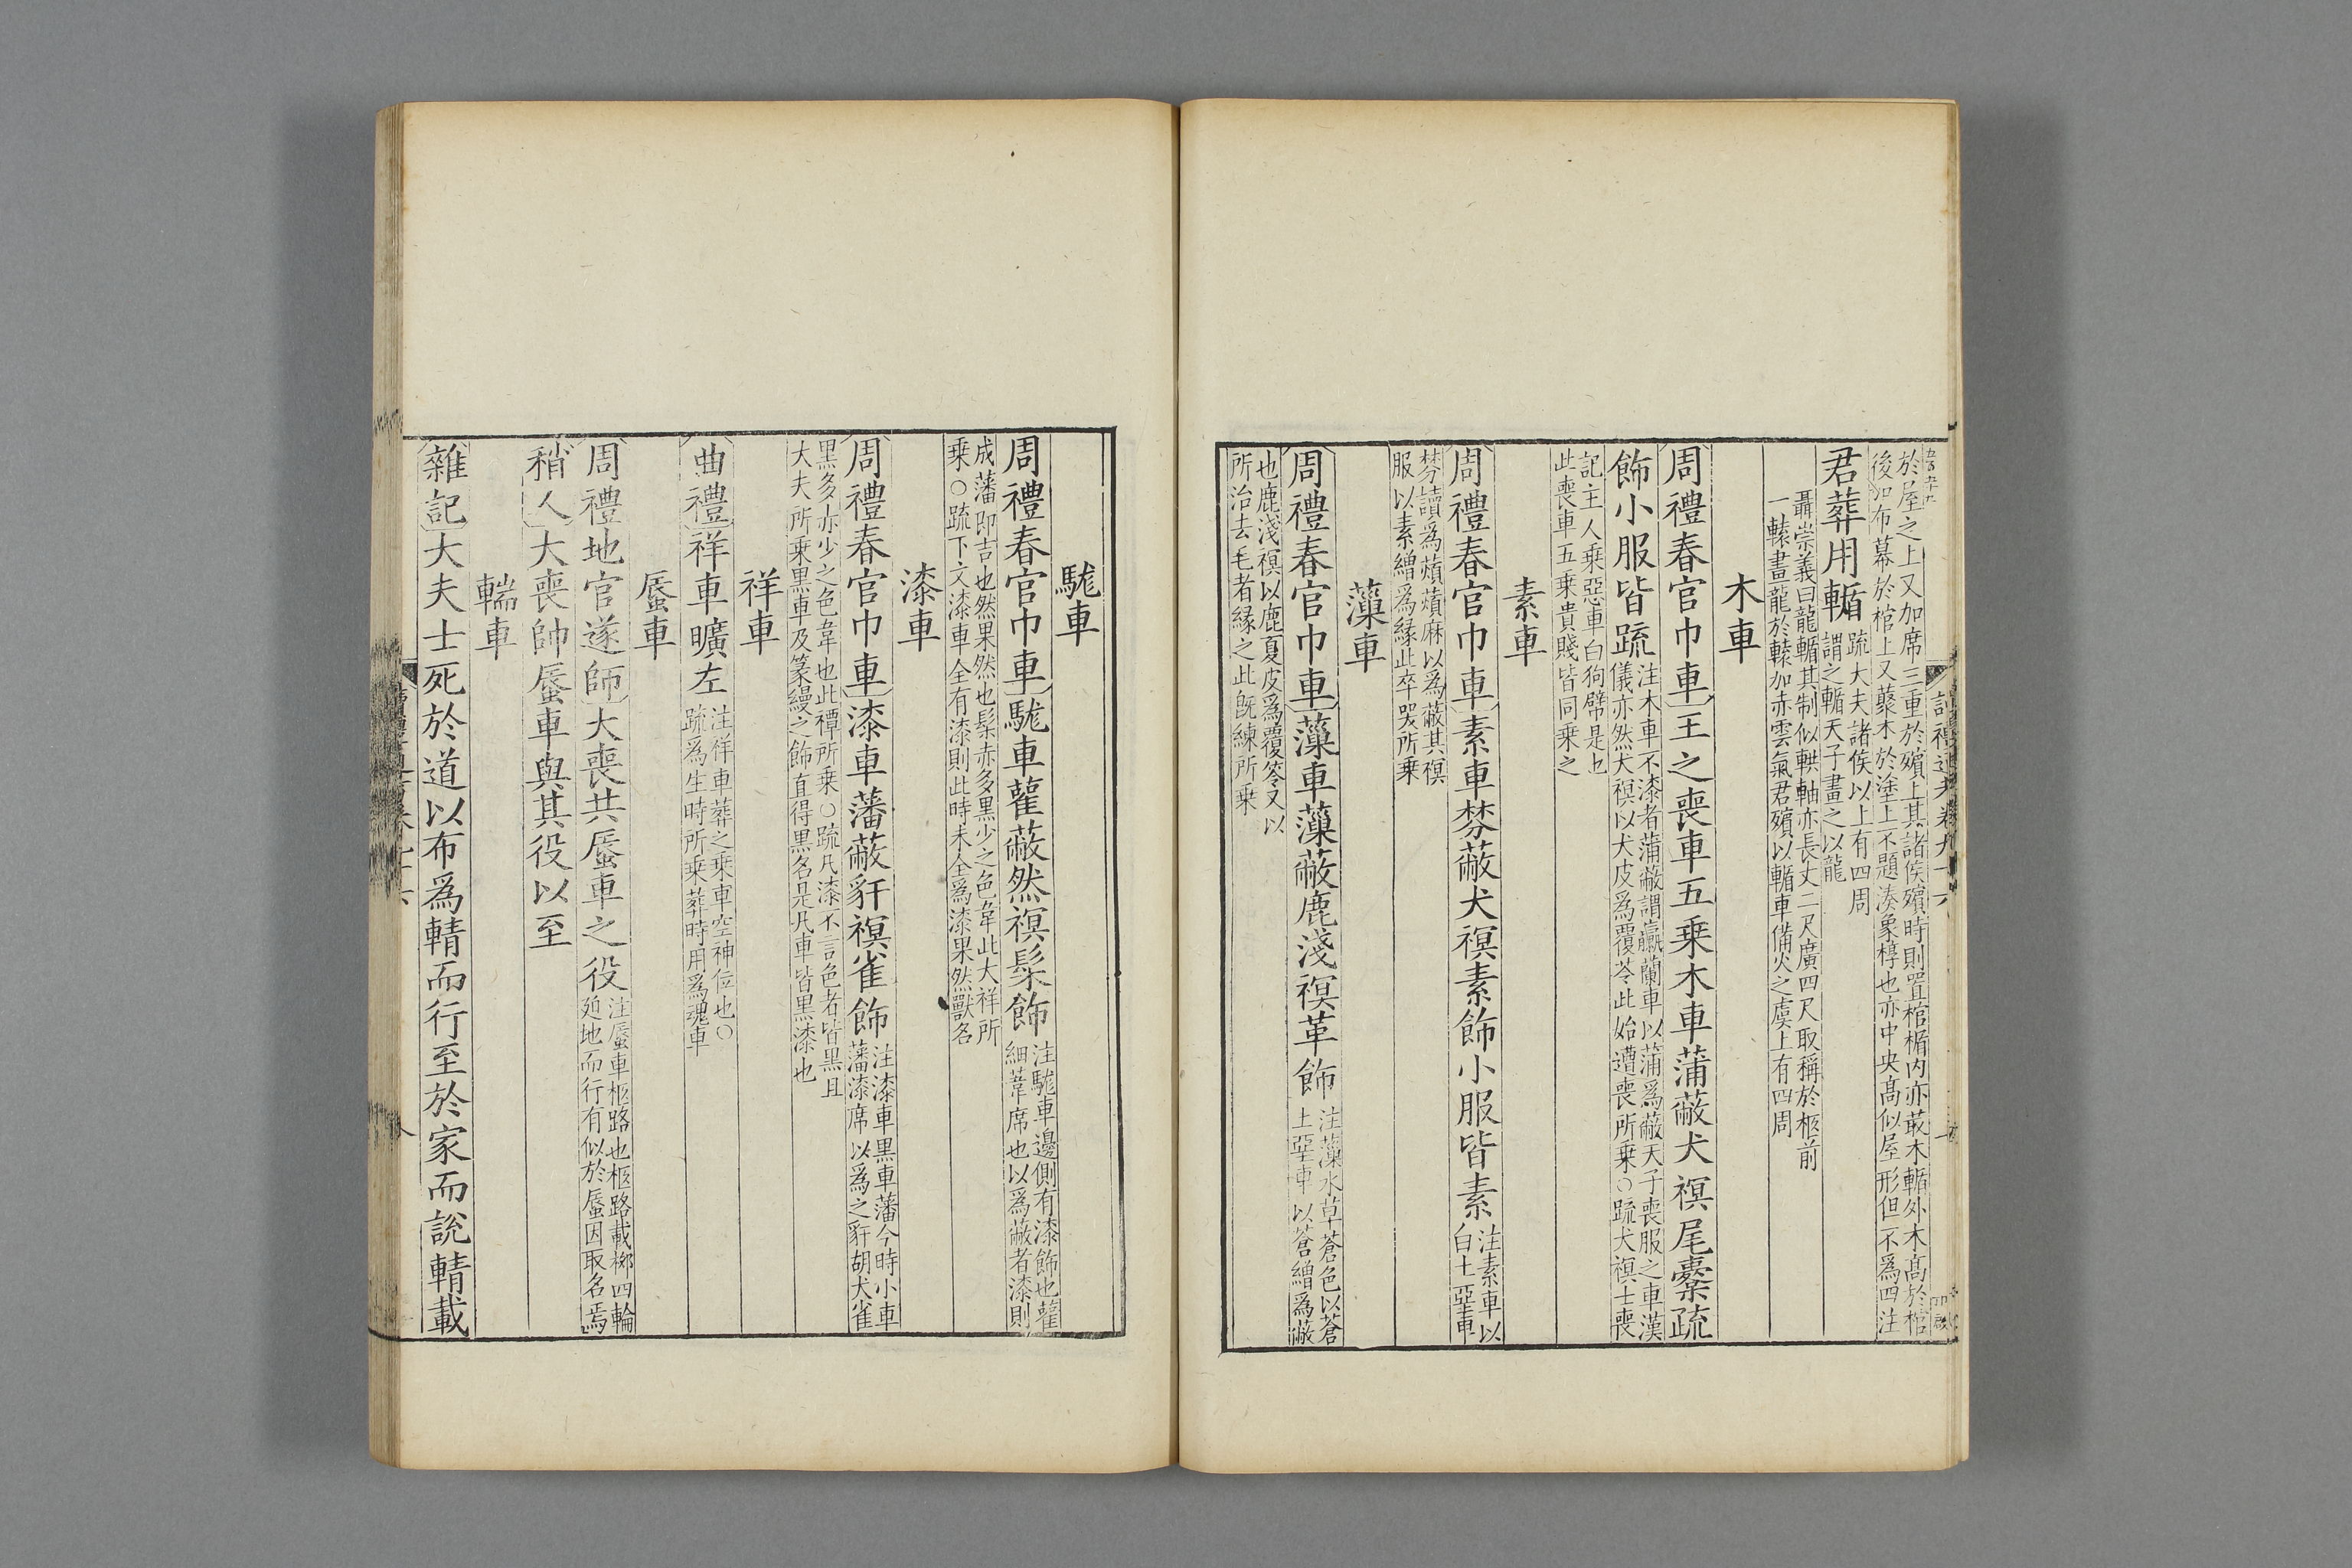 於屋之上又加席三重於殯上其諸侯殯時則置棺楯内亦菆木輴外木髙於棺
後以布幕於棺上又藂木於塗上不題湊象椁也亦中央髙似屋形但不爲四注
君葬用輴疏大夫諸侯以上有四周
謂之輴天子畫之以龍
聶崇義曰龍輴其制似輁軸亦長丈二尺廣四尺取稱於柩前
一轅畫龍於轅加赤雲氣君殯以輴車備火之虞上有四周
木車
周禮春官巾車王之喪車五乗木車蒲蔽犬𧜀尾櫜疏
飾小服皆疏注木車不漆者蒲蔽謂臝蘭車以蒲爲蔽天子喪服之車漢
儀亦然犬𧜀以犬皮爲覆苓此始遭喪所乗○疏犬𧜀士喪
記主人乗惡車白狗幦是也
此喪車五乗貴賤皆同乗之
素車
周禮春官巾車素車棼蔽犬𧜀素飾小服皆素注素車以
白土堊車
棼讀爲薠薠麻以爲蔽其𧜀
服以素繒爲緣此卒哭所乗
薻車
周禮春官巾車薻車薻蔽鹿淺𧜀革飾注薻水草蒼色以蒼
土堊車以蒼繒爲蔽
也鹿淺𧜀以鹿夏皮爲覆笭又以
所治去毛者緣之此旣練所乗
駹車
周禮春官巾車駹車雚蔽然𧜀髤飾注駹車邊側有漆飾也雚
細葦席也以爲蔽者漆則
成藩即吉也然果然也髤赤多黒少之色韋此大祥所
乗○疏下文漆車全有漆則此時未全爲漆果然獸名
漆車
周禮春官巾車漆車藩蔽豻𧜀雀飾注漆車黒車藩今時小車
藩漆席以爲之豻胡犬雀
黒多赤少之色韋也此禫所乗○疏凡漆不言色者皆黒且
大夫所乗黒車及篆縵之飾直得黒名是凡車皆黒漆也
祥車
曲禮祥車曠左注祥車葬之乗車空神位也○
疏爲生時所乗葬時用爲魂車
蜃車
周禮地官遂師大喪共蜃車之役注蜃車柩路也柩路載柳四輪
廹地而行有似於蜃因取名焉
稍人大喪帥蜃車與其役以至
輲車
雜記大夫士死於道以布爲輤而行至於家而說輤載